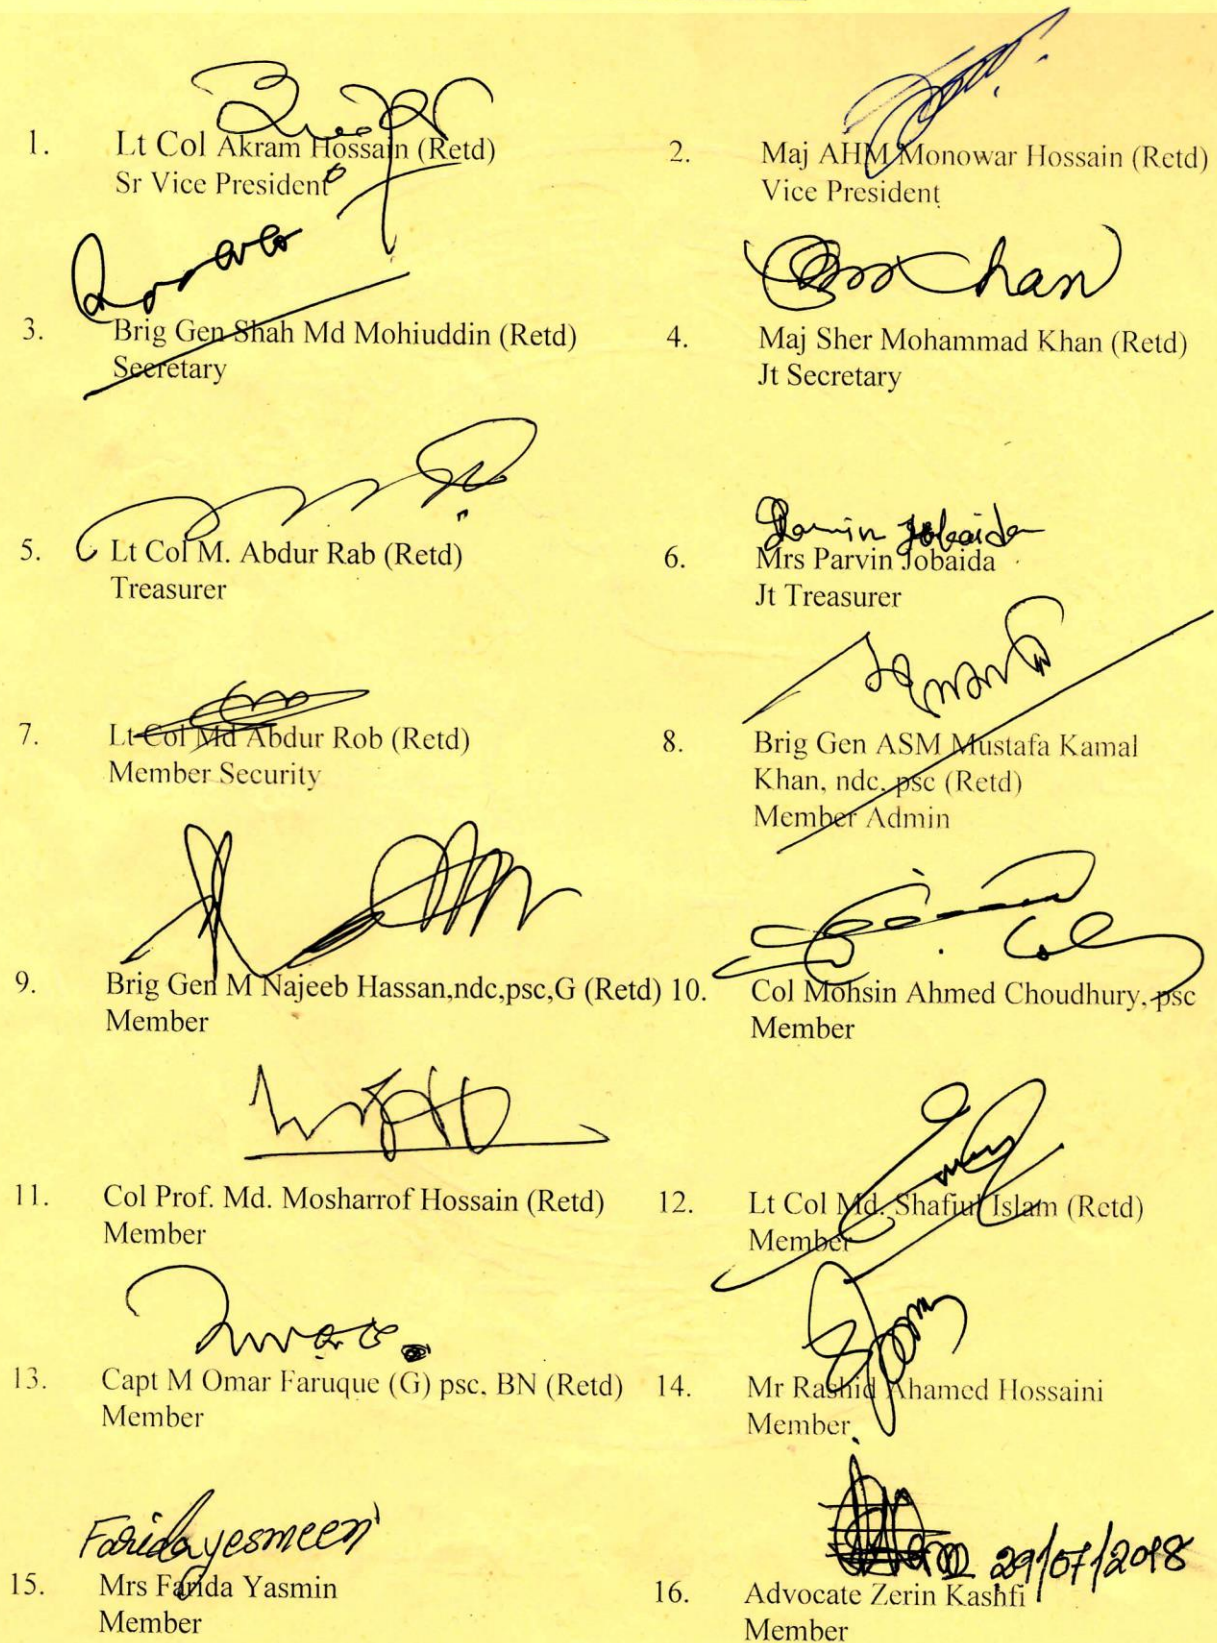 1. Lt Col Akram Hossain (Retd)
Sr Vice President
2. Maj AHM Monowar Hossain (Retd)
Vice President
3. Brig Gen Shah Md Mohiuddin (Retd)
Secretary
Khan
4. Maj Sher Mohammad Khan (Retd)
Jt Secretary
5. Lt Col M. Abdur Rab (Retd)
Treasurer
Parvin Jobaida
6. Mrs Parvin Jobaida
Jt Treasurer
7. Lt Col Md Abdur Rob (Retd)
Member Security
8. Brig Gen ASM Mustafa Kamal
Khan, ndc, psc (Retd)
Member Admin
9. Brig Gen M Najeeb Hassan,ndc,psc,G (Retd)
Member
Col
10. Col Mohsin Ahmed Choudhury, psc
Member
11. Col Prof. Md. Mosharrof Hossain (Retd)
Member
12. Lt Col Md. Shafiul Islam (Retd)
Member
13. Capt M Omar Faruque (G) psc, BN (Retd)
Member
14. Mr Rashid Ahamed Hossaini
Member
Farida yesmeen
15. Mrs Farida Yasmin
Member
29/07/2018
16. Advocate Zerin Kashfi
Member